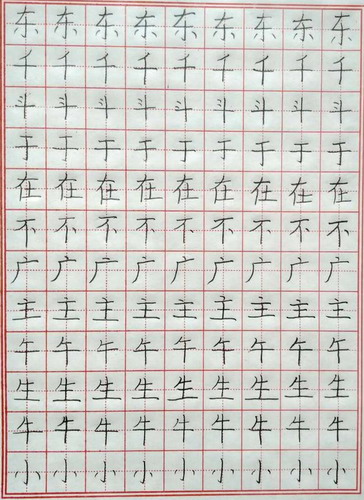 东东东东东东东东东
千千千千千千千千千
斗斗斗斗斗斗斗斗斗
于于于于于于于于于
在在在在在在在在在
不不不不不不不不不
广广广广广广广广广
主主主主主主主主主
午午午午午午午午午
生生生生生生生生生
牛牛牛牛牛牛牛牛牛
小小小小小小小小小